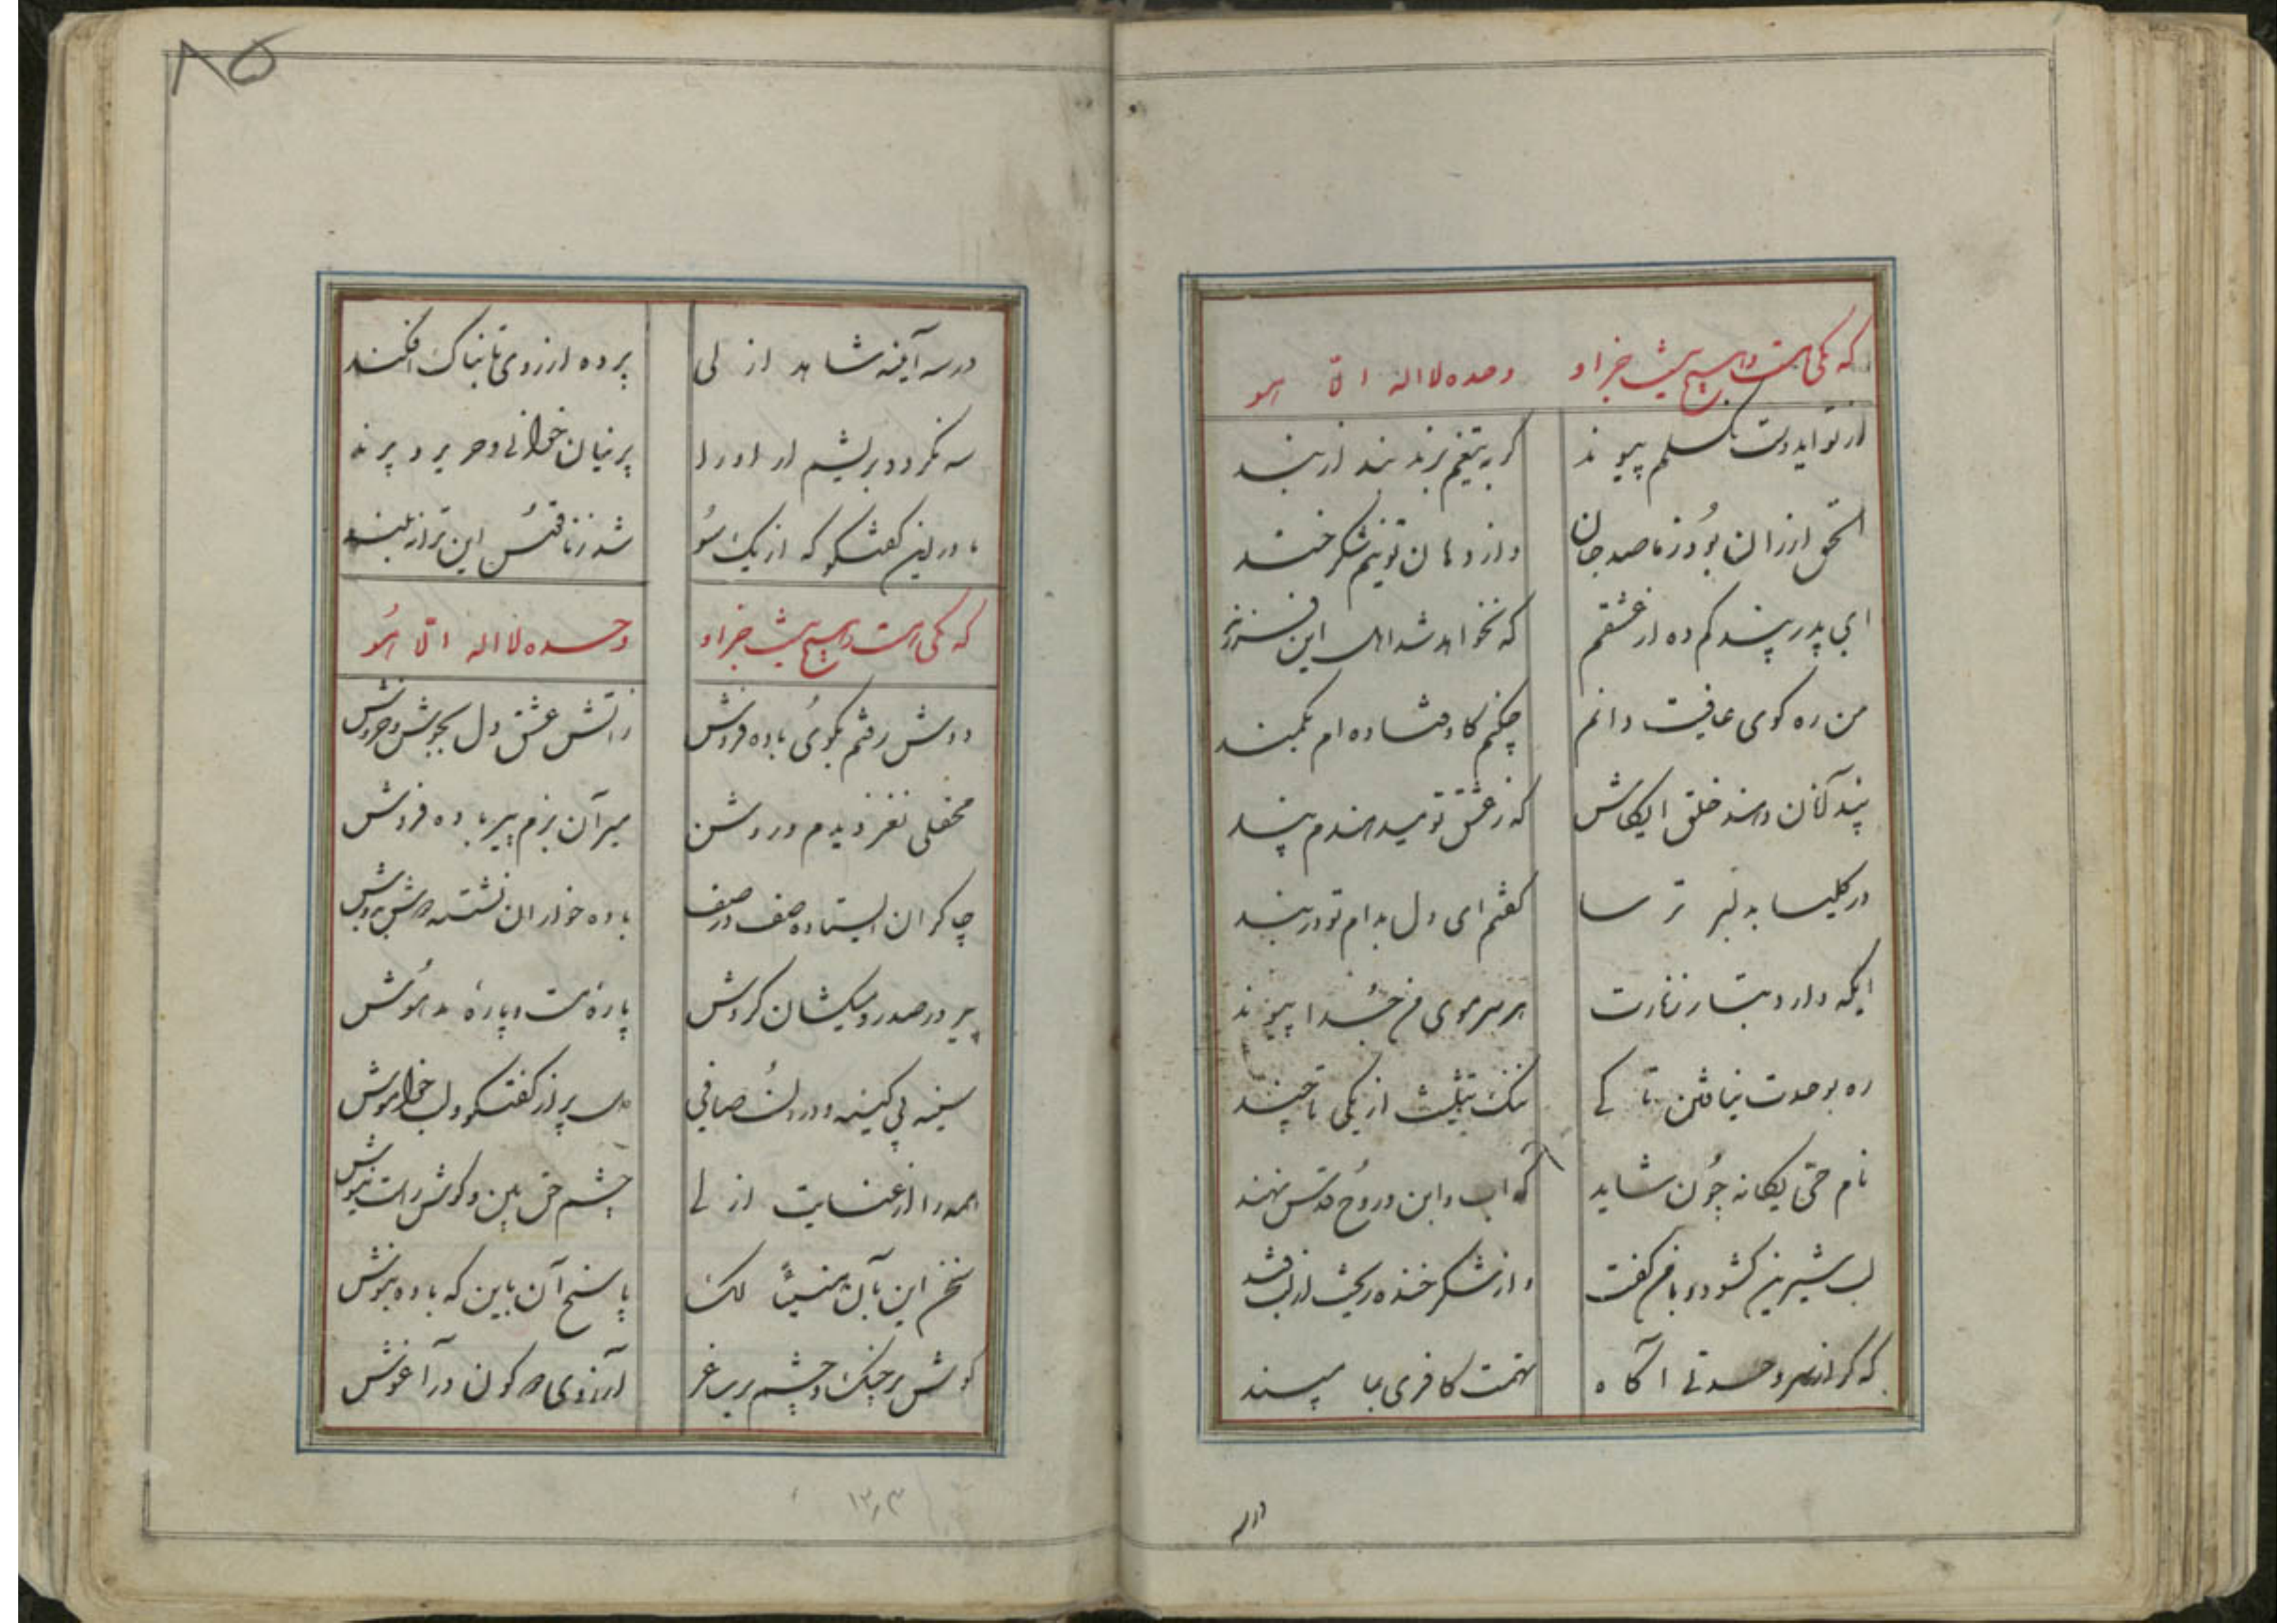 که یکی هست و هیچ نیست جز او وحده لا اله الا هو
از تو ایدوست نکسلم پیوند گر به تیغم برند بند از بند
الحق ارزان بود ز ما صد جان واز دهان تو نیم شکر خند
ای پدر پند کم ده از عشقم که نخواهد شد اهل این فرزند
من ره کوی عافیت دانم چکنم کاوفتاده ام بکمند
پند آنان دهند خلق ایکاش که ز عشق تو میدهندم پند
در کلیسا بدلبر ترسا گفتم ای دل بدام تو در بند
ایکه دارد بتار زنارت هر سر موی من جدا پیوند
ره بوحدت نیافتن تا کے ننک تثلیث از یکی تا چند
نام حق یکانه چون شاید که اب و ابن و روح قدس نهند
لب شیرین کشود و با من گفت واز شکر خنده ریخت از لب قند
که گر از سر وحدتے آگاه تهمت کافری بما مپسند
در سه
۸۵
در سه آینه شاهد ازلی پرده از روی تابناک افکند
سه نکردد بریشم ار او را پرنیان خوانے و حریر و پرند
ما در این کفتکو که از یک سو شد ز ناقوس این ترانه بلند
که یکی هست و هیچ نیست جز او وحده لا اله الا هو
دوش رفتم بکوی باده فروش ز آتش عشق دل بجوش و خروش
محفلی نغز دیدم و روشن میر آن بزم پیر باده فروش
چاکران ایستاده صف در صف باده خواران نشسته دوش بدوش
پیر در صدر و میکشان کردش پارهٔ مست و پارهٔ مدهوش
سینه بی کینه و درون صافی دل پر از کفتکو و لب خاموش
همه را از عنایت ازلے چشم حق بین و کوش راست نیوش
سخن این بآن هنیئاً لک پاسخ آن باین که باده بنوش
کوش بر چنک و چشم بر ساغر آرزوی دو کون در آغوش